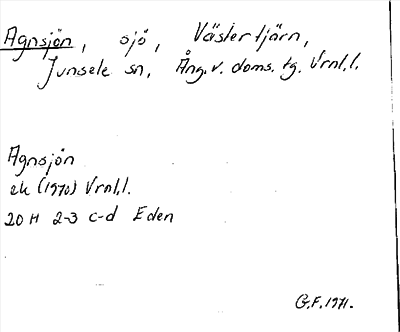 Agnsjön, sjö, Västertjärn,
Junsele sn, Ång. v. doms. tg. Vrnl. l.
Agnsjön
ek (1970) Vrnl. l.
20 H 2-3 c-d Eden
G.F. 1971.